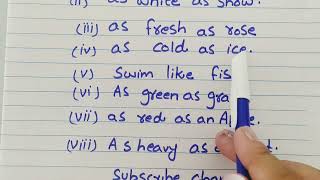 (ii) as white as snow.
(iii) as fresh as rose
(iv) as cold as ice.
(v) Swim like fis
(vi) As green as gra
(vii) as red as an Apple.
(viii) As heavy as
Subscribe